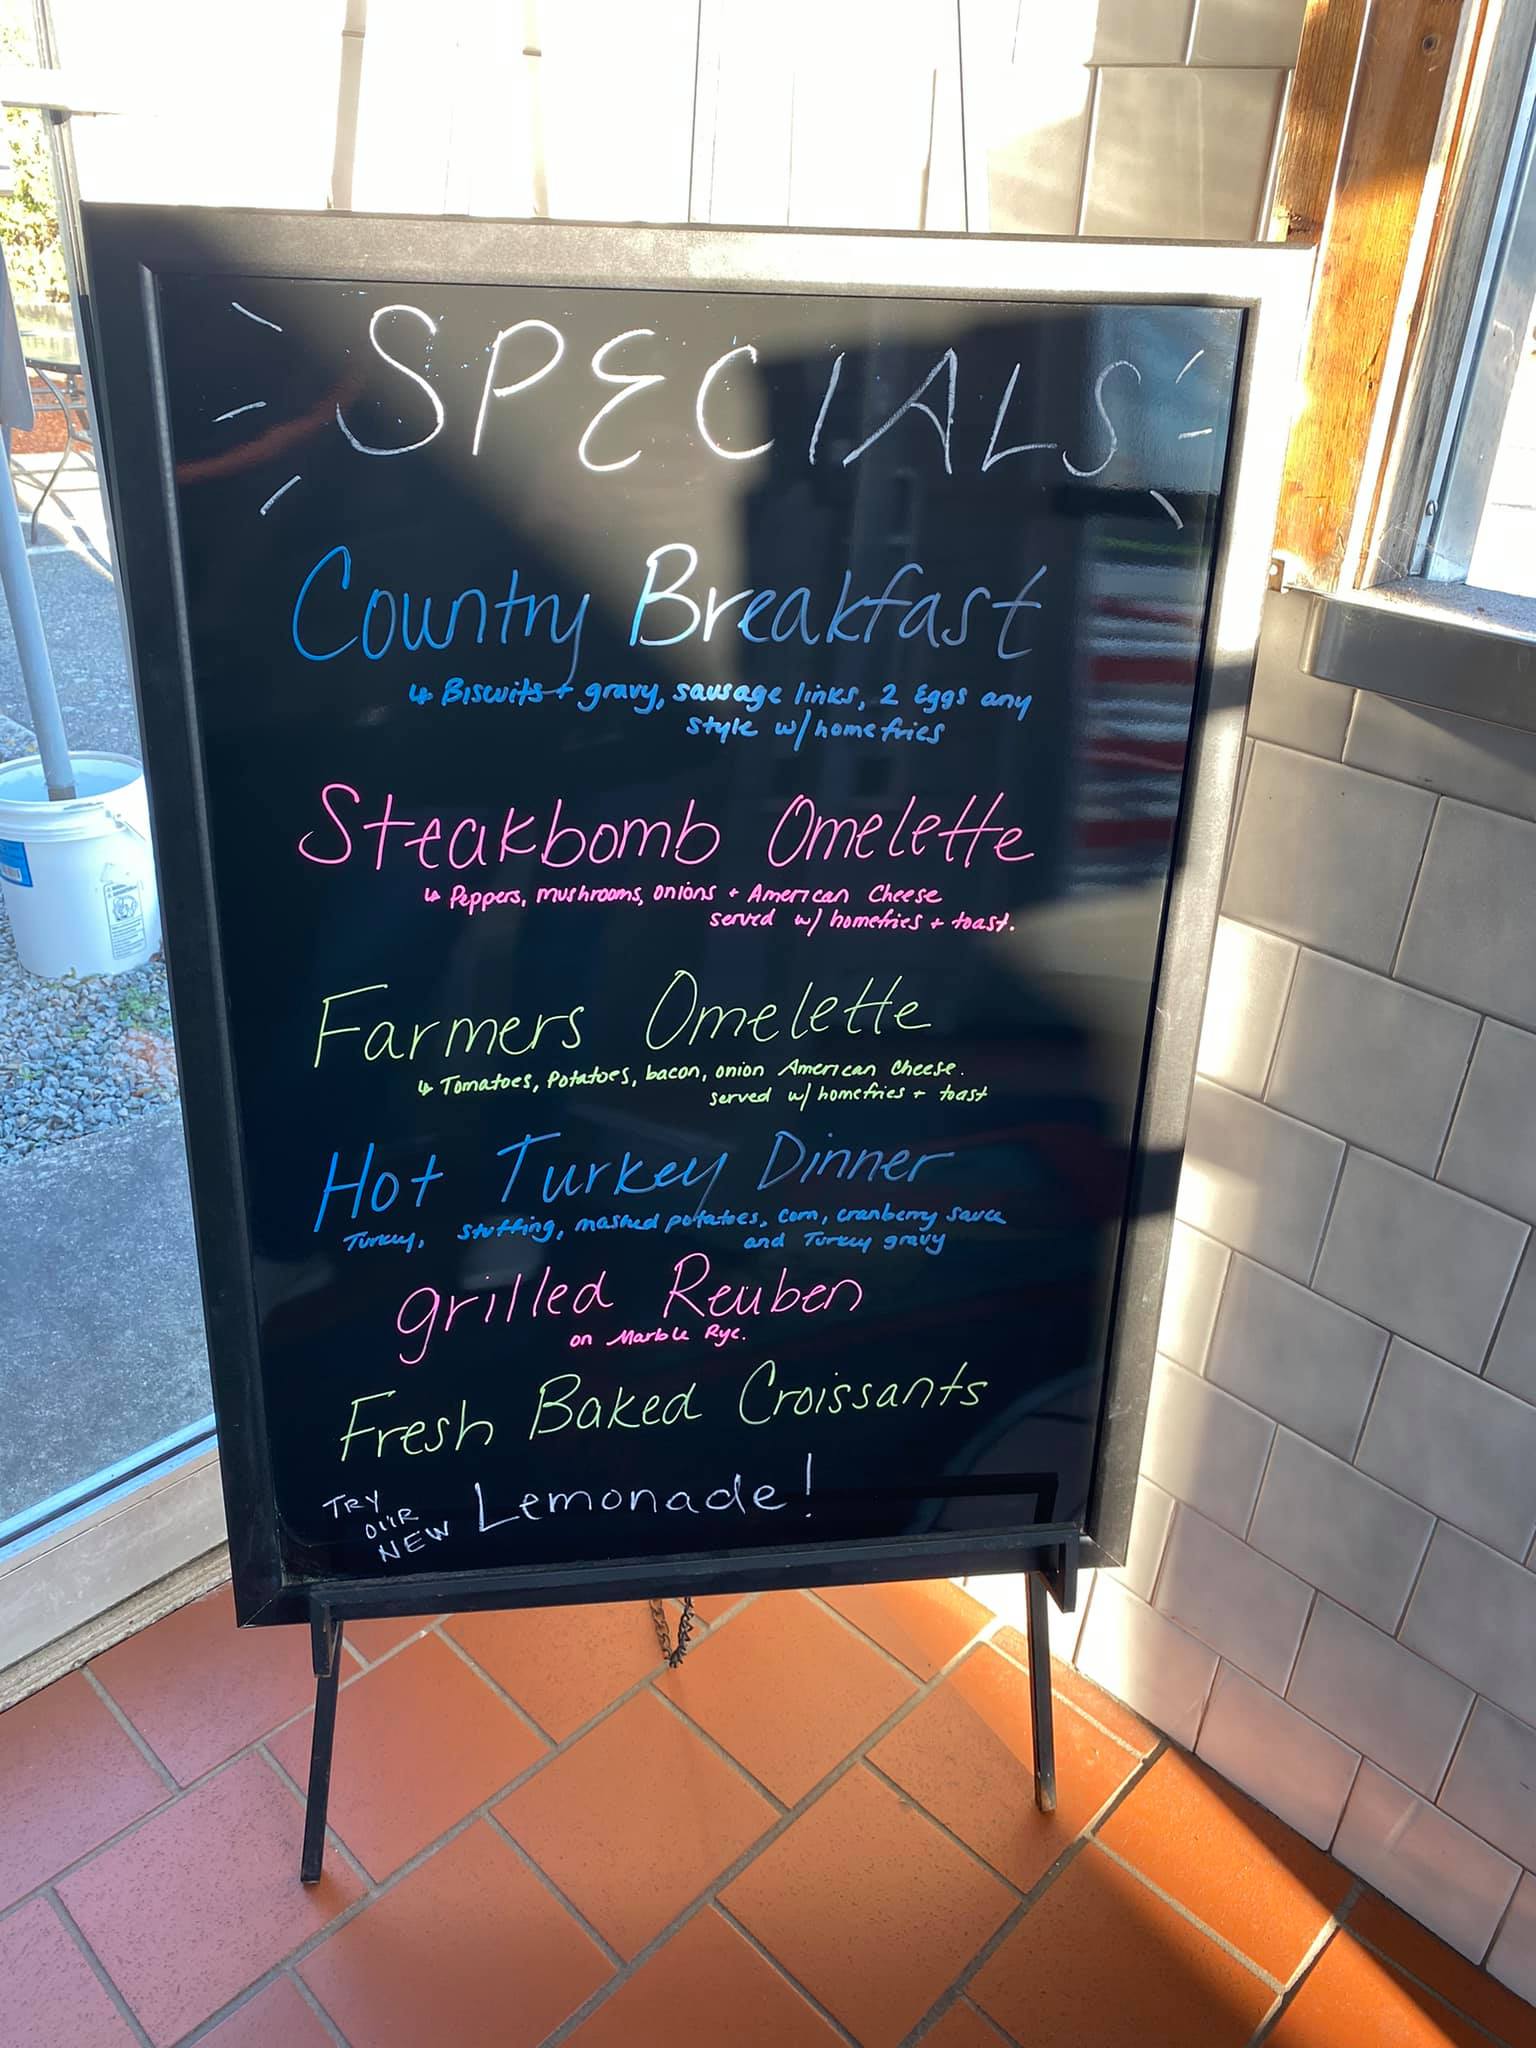 SPECIALS
Country Breakfast
↳ Biscuits + gravy, sausage links, 2 Eggs any
style w/ homefries
Steakbomb Omelette
↳ Peppers, mushrooms, onions + American Cheese
served w/ homefries + toast.
Farmers Omelette
↳ Tomatoes, Potatoes, bacon, onion American Cheese.
served w/ homefries + toast
Hot Turkey Dinner
Turkey, stuffing, mashed potatoes, corn, cranberry sauce
and Turkey gravy
grilled Reuben
on Marble Rye.
Fresh Baked Croissants
TRY
OUR
NEW Lemonade!